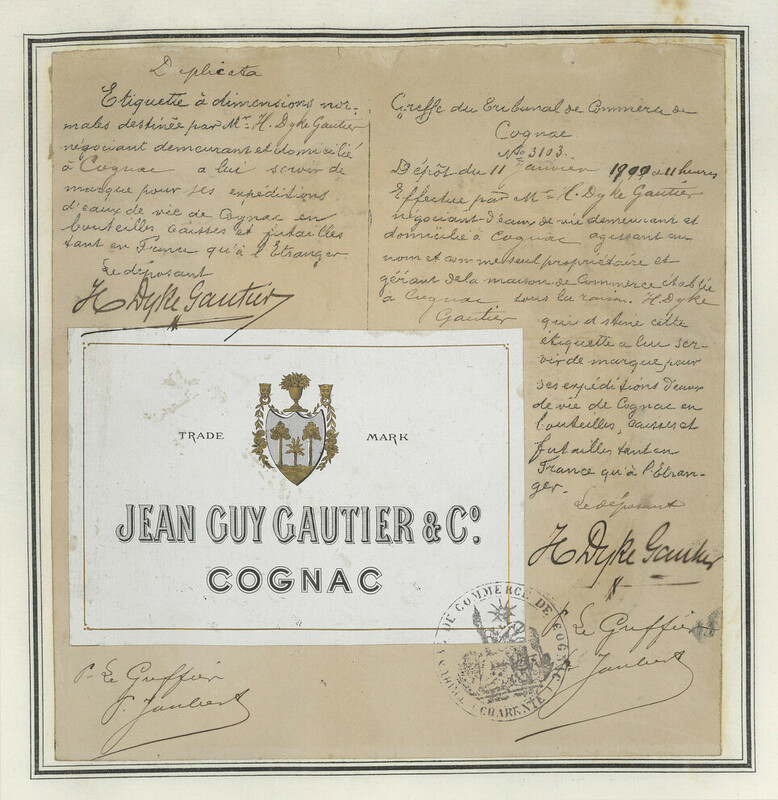 Duplicata
Etiquette à dimensions nor-
males destinée par Mr. H. Dyke Gautier
négociant demeurant et domicilié
à Cognac a lui servir de
marque pour ses expéditions
d'eaux de vie de Cognac en
bouteilles caisses et futailles
tant en France qu'à l'Etranger
Le déposant
H Dyke Gautier
Greffe du Tribunal de Commerce de
Cognac
No. 3103.
Dépôt du 11 Janvier 1900 à 11 heures
Effectué par Mr. H. Dyke Gautier
négociant d'eaux de vie demeurant et
domicilié à Cognac agissant au
nom et comme seul propriétaire et
gérant de la maison de Commerce établie
à Cognac sous la raison. H. Dyke
Gautier
qui destine cette
étiquette a lui ser-
vir de marque pour
ses expéditions d'eaux
de vie de Cognac en
bouteilles, caisses et
futailles tant en
France qu'à l'Etran-
ger.
Le déposant
H Dyke Gautier
TRADE MARK
JEAN GUY GAUTIER & Co.
COGNAC
DE COMMERCE DE COGNAC
(CHARENTE)
Le Greffier
Joubert
P. Le Greffier
P. Joubert